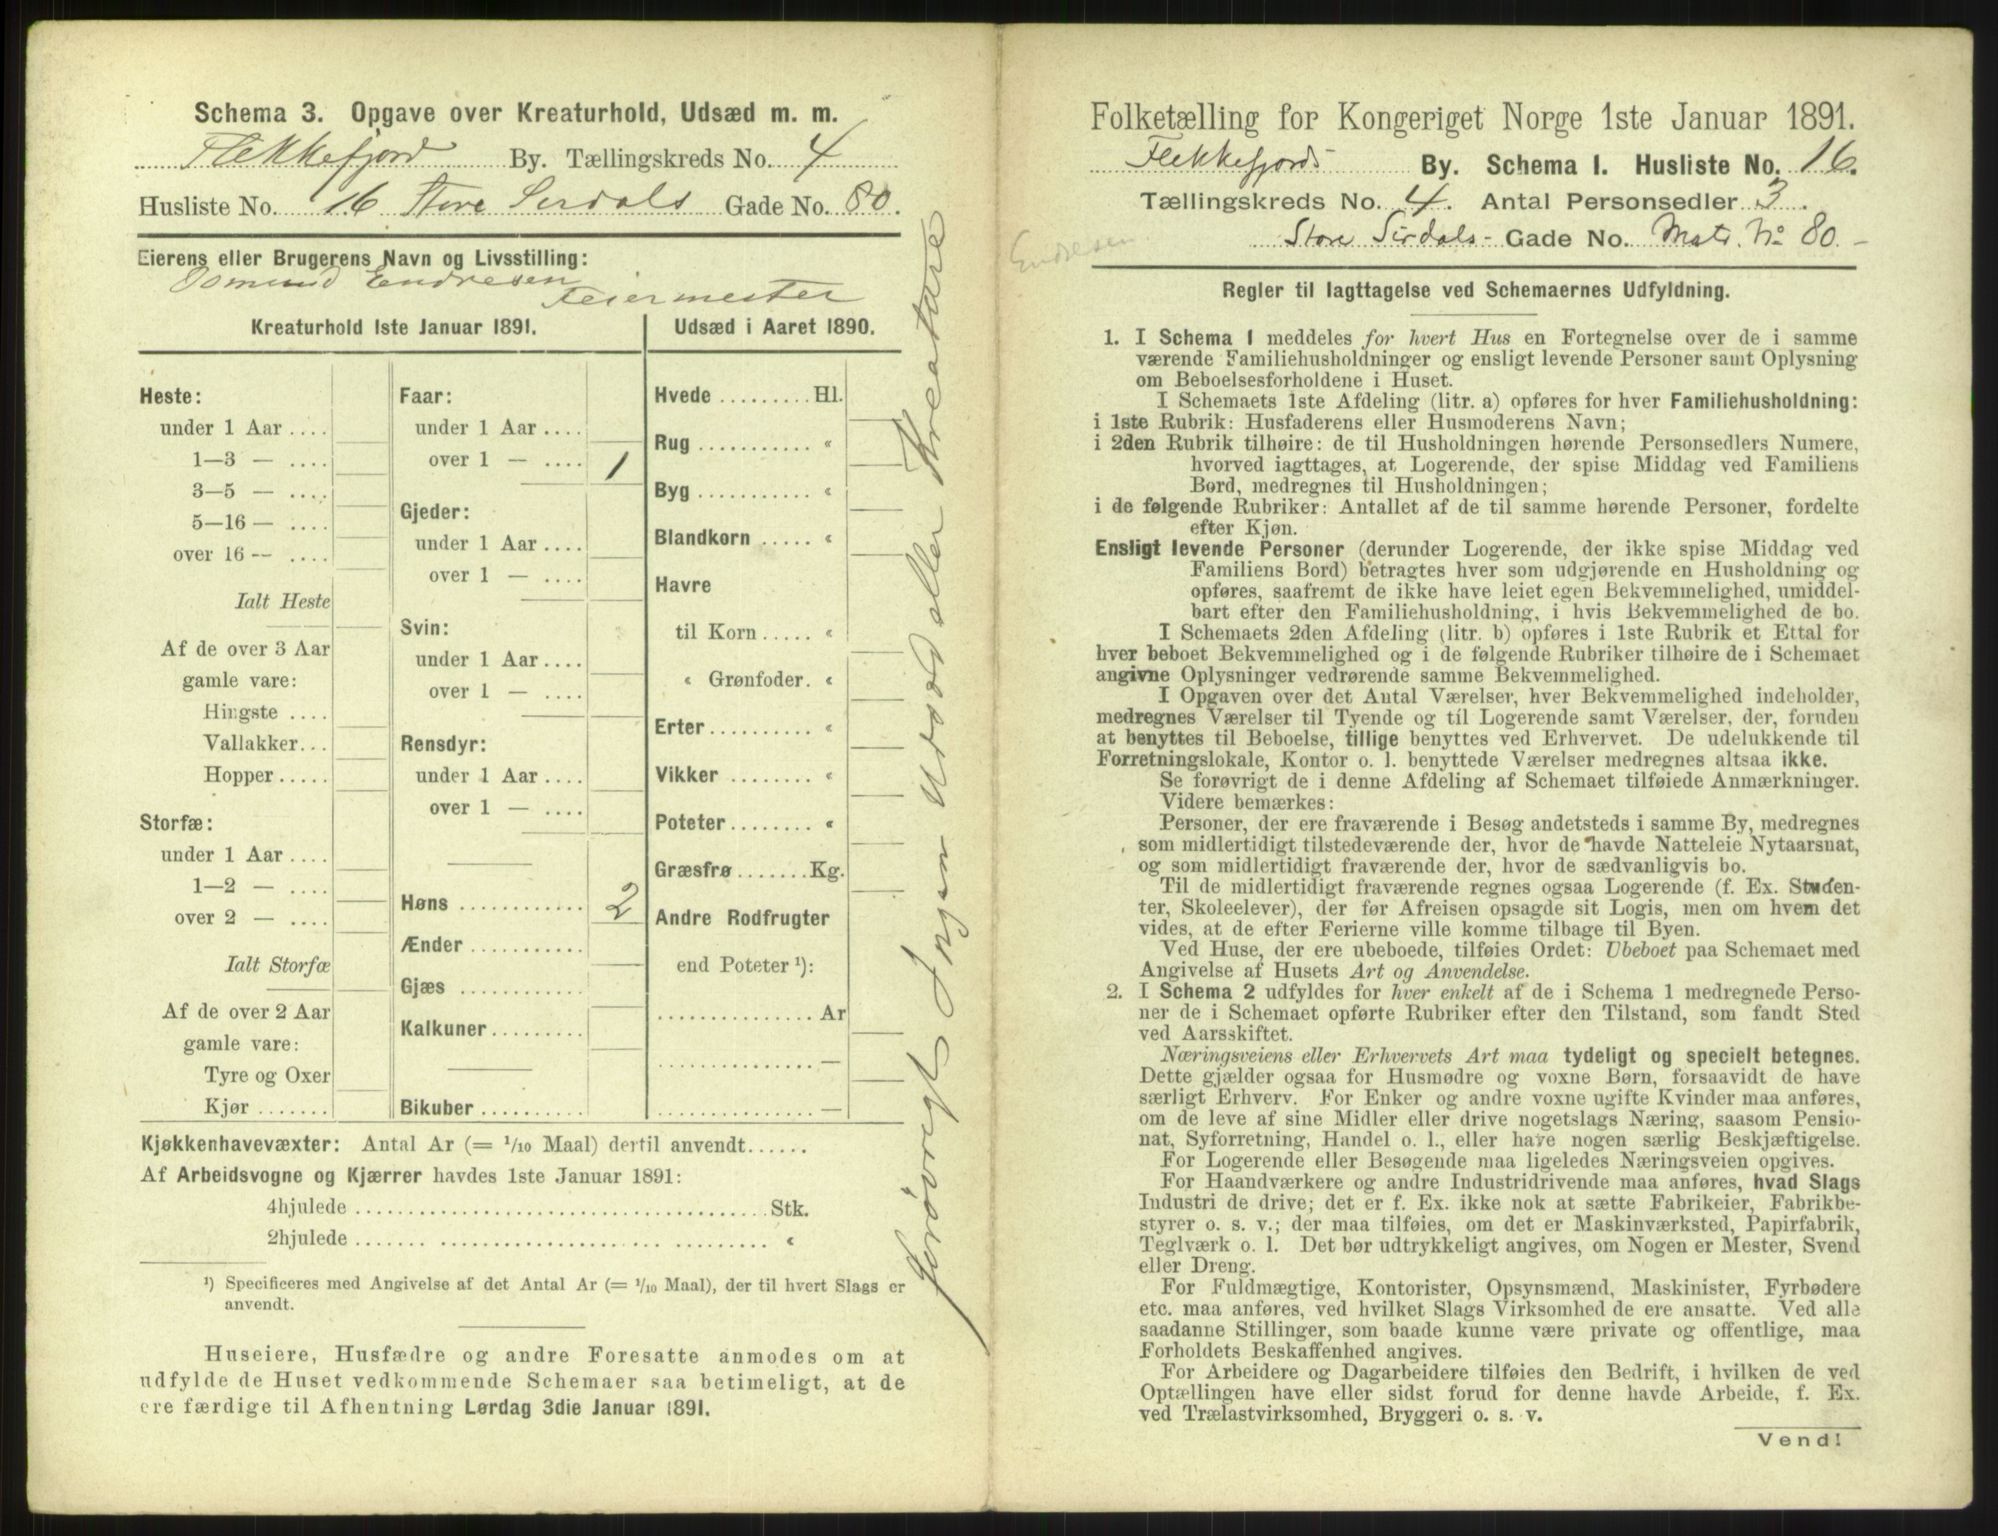 Schema 3. Opgave over Kreaturhold, Udsæd m. m.
Flekkefjord By. Tællingskreds No. 4
Husliste No. 16 Store Serdals Gade No. 80.
Eierens eller Brugerens Navn og Livsstilling:
Osmund Endresen
Feiermester
Kreaturhold 1ste Januar 1891.
Heste:
under 1 Aar ....
1—3 — ....
3—5 — ....
5—16 — ....
over 16 — ....
Ialt Heste
Af de over 3 Aar
gamle vare:
Hingste ....
Vallakker...
Hopper.....
Storfæ:
under 1 Aar ....
1—2 — ....
over 2 — ....
Ialt Storfæ
Af de over 2 Aar
gamle vare:
Tyre og Oxer
Kjør .......
Faar:
under 1 Aar ....
over 1 — .... 1
Gjeder:
under 1 Aar ....
over 1 — ....
Svin:
under 1 Aar ....
over 1 — ....
Rensdyr:
under 1 Aar ....
over 1 — ....
Høns ............ 2
Ænder ...........
Gjæs ............
Kalkuner.........
Bikuber..........
Udsæd i Aaret 1890.
Hvede .........Hl.
Rug ........... «
Byg ........... «
Blandkorn ..... «
Havre
til Korn ..... «
« Grønfoder. «
Erter.......... «
Vikker ........ «
Poteter........ «
Græsfrø.......Kg.
Andre Rodfrugter
end Poteter ¹):
............... Ar
............... —
............... —
Forøvrigt Ingen Udsæd eller Kreature
Kjøkkenhavevæxter: Antal Ar (= 1/10 Maal) dertil anvendt......
Af Arbeidsvogne og Kjærrer havdes 1ste Januar 1891:
4hjulede ........................................Stk.
2hjulede ........................................ «
¹) Specificeres med Angivelse af det Antal Ar (= 1/10 Maal), der til hvert Slags er
anvendt.
Huseiere, Husfædre og andre Foresatte anmodes om at
udfylde de Huset vedkommende Schemaer saa betimeligt, at de
ere færdige til Afhentning Lørdag 3die Januar 1891.
Folketælling for Kongeriget Norge 1ste Januar 1891.
Flekkefjords By. Schema I. Husliste No. 16.
Tællingskreds No. 4. Antal Personsedler 3.
Endresen
Store Sirdals- Gade No. Matr. No 80.-
Regler til Iagttagelse ved Schemaernes Udfyldning.
1. I Schema 1 meddeles for hvert Hus en Fortegnelse over de i samme
værende Familiehusholdninger og ensligt levende Personer samt Oplysning
om Beboelsesforholdene i Huset.
I Schemaets 1ste Afdeling (litr. a) opføres for hver Familiehusholdning:
i 1ste Rubrik: Husfaderens eller Husmoderens Navn;
i 2den Rubrik tilhøire: de til Husholdningen hørende Personsedlers Numere,
hvorved iagttages, at Logerende, der spise Middag ved Familiens
Bord, medregnes til Husholdningen;
i de følgende Rubriker: Antallet af de til samme hørende Personer, fordelte
efter Kjøn.
Ensligt levende Personer (derunder Logerende, der ikke spise Middag ved
Familiens Bord) betragtes hver som udgjørende en Husholdning og
opføres, saafremt de ikke have leiet egen Bekvemmelighed, umiddel-
bart efter den Familiehusholdning, i hvis Bekvemmelighed de bo.
I Schemaets 2den Afdeling (litr. b) opføres i 1ste Rubrik et Ettal for
hver beboet Bekvemmelighed og i de følgende Rubriker tilhøire de i Schemaet
angivne Oplysninger vedrørende samme Bekvemmelighed.
I Opgaven over det Antal Værelser, hver Bekvemmelighed indeholder,
medregnes Værelser til Tyende og til Logerende samt Værelser, der, foruden
at benyttes til Beboelse, tillige benyttes ved Erhvervet. De udelukkende til
Forretningslokale, Kontor o. l. benyttede Værelser medregnes altsaa ikke.
Se forøvrigt de i denne Afdeling af Schemaet tilføiede Anmærkninger.
Videre bemærkes:
Personer, der ere fraværende i Besøg andetsteds i samme By, medregnes
som midlertidigt tilstedeværende der, hvor de havde Natteleie Nytaarsnat,
og som midlertidigt fraværende der, hvor de sædvanligvis bo.
Til de midlertidigt fraværende regnes ogsaa Logerende (f. Ex. Studen-
ter, Skoleelever), der før Afreisen opsagde sit Logis, men om hvem det
vides, at de efter Ferierne ville komme tilbage til Byen.
Ved Huse, der ere ubeboede, tilføies Ordet: Ubeboet paa Schemaet med
Angivelse af Husets Art og Anvendelse.
2. I Schema 2 udfyldes for hver enkelt af de i Schema 1 medregnede Perso-
ner de i Schemaet opførte Rubriker efter den Tilstand, som fandt Sted
ved Aarsskiftet.
Næringsveiens eller Erhvervets Art maa tydeligt og specielt betegnes.
Dette gjælder ogsaa for Husmødre og voxne Børn, forsaavidt de have
særligt Erhverv. For Enker og andre voxne ugifte Kvinder maa anføres,
om de leve af sine Midler eller drive nogetslags Næring, saasom Pensio-
nat, Syforretning, Handel o. l., eller have nogen særlig Beskjæftigelse.
For Logerende eller Besøgende maa ligeledes Næringsveien opgives.
For Haandværkere og andre Industridrivende maa anføres, hvad Slags
Industri de drive; det er f. Ex. ikke nok at sætte Fabrikeier, Fabrikbe-
styrer o. s. v.; der maa tilføies, om det er Maskinværksted, Papirfabrik,
Teglværk o. l. Det bør udtrykkeligt angives, om Nogen er Mester, Svend
eller Dreng.
For Fuldmægtige, Kontorister, Opsynsmænd, Maskinister, Fyrbødere
etc. maa anføres, ved hvilket Slags Virksomhed de ere ansatte. Ved alle
saadanne Stillinger, som baade kunne være private og offentlige, maa
Forholdets Beskaffenhed angives.
For Arbeidere og Dagarbeidere tilføies den Bedrift, i hvilken de ved
Optællingen have eller sidst forud for denne havde Arbeide, f. Ex.
ved Trælastvirksomhed, Bryggeri o. s. v.
Vend!